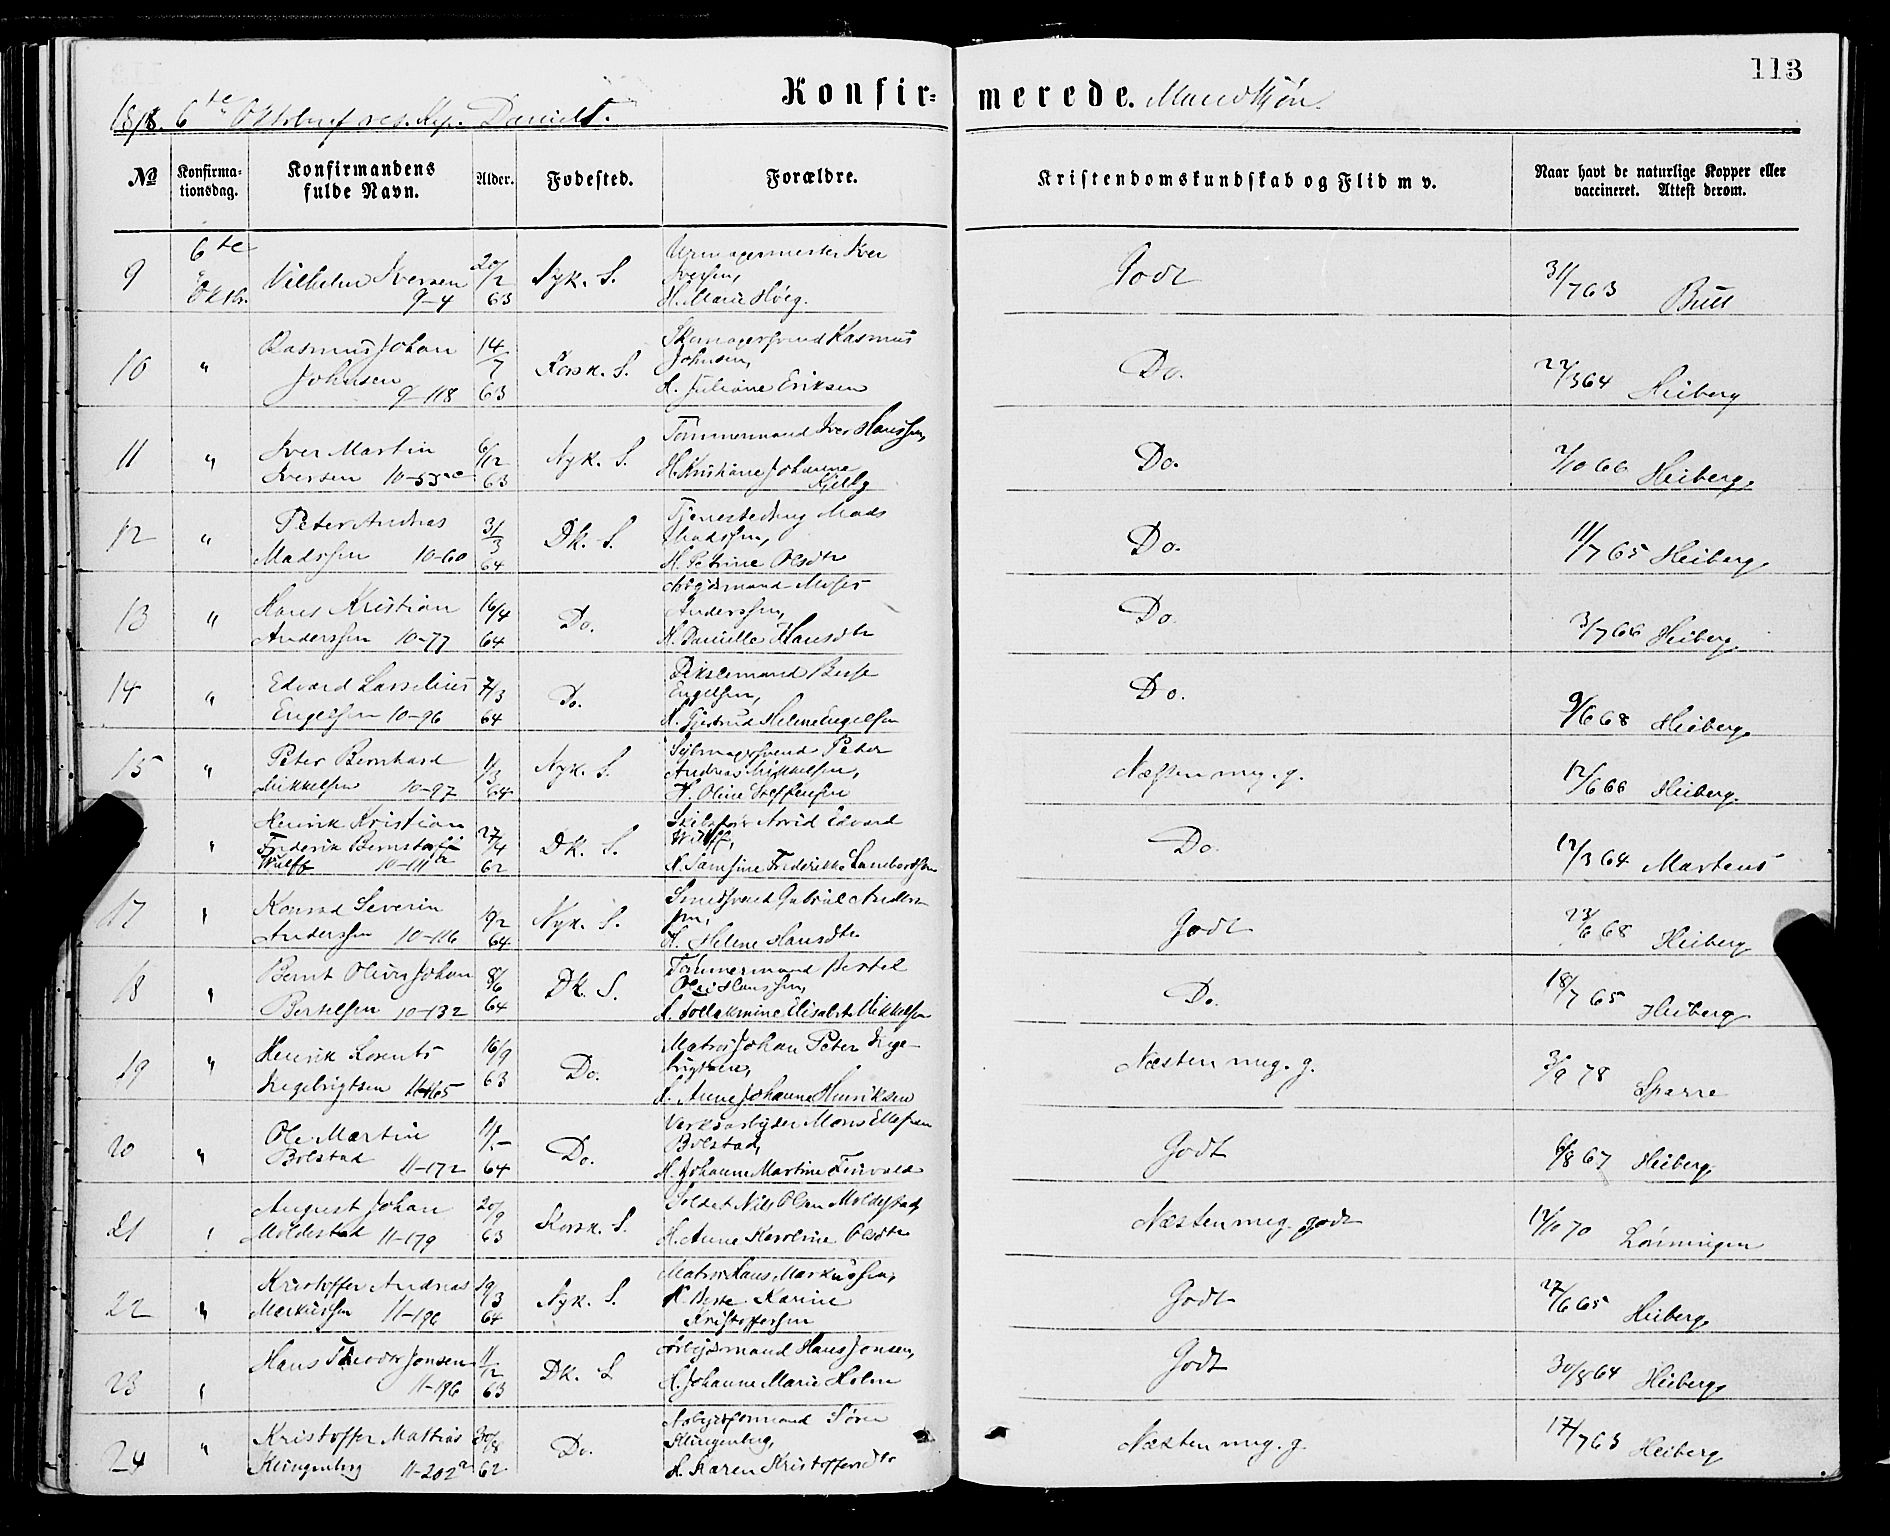 113
Konfir- merede. Mandkjøn.
1878. 6te Oktober res. Kap. Daniels.
No
Konfirma-
tionsdag.
Konfirmandens
fulde Navn.
Alder.
Fødested.
Forældre.
Kristendomskundskab og Flid m v.
Naar havt de naturlige Kopper eller
vaccineret. Attest derom.
9 6te Oktbr. Vilhelm Iversen 9-4 20/2 63 Nyk. S. Urmagermester Iver
Iversen,
H. Marie Høeg. Godt 31/7 63 Bull
10 " Rasmus Johan
Johnsen 9-118 14/7 63 Korsk. S. Skomagersvend Rasmus
Johnsen,
H. Juliane Eriksen Do. 22/3 64 Heiberg
11 " Iver Martin
Iversen 10-53 6/12 63 Nyk. S. Tømmermand Iver Hanssen,
H. Kristiane Johanne
Kjelby Do. 2/10 66 Heiberg
12 " Peter Andreas
Madssen 10-60 31/3 64 Dk. S. Tjenestedreng Mads
Madssen,
H. Petrine Olsdtr Do. 11/7 65 Heiberg
13 " Hans Kristian
Anderssen 10-77 16/4 64 Do. Arbejdsmand Moses
Anderssen,
H. Danielle Hansdtr Do 3/7 66 Heiberg
14 " Edvard Lasselius
Engelsen 10-96 7/3 64 Do. Engelsen,
H. Gjertrud Helene Engelsen Do. 9/6 68 Heiberg
15 " Peter Bernhard
Mikkelsen 10-97 11/3 64 Nyk. S. Peter
Andreas Mikkelsen,
H. Oline Steffensen Næsten meg. g. 12/6 66 Heiberg
" Henrik Kristian
Frederik Bernstorff
Wulff 10-111 27/4 62 Dk. S. Skibsfører Arvid Edvard
Wulff,
H. Samsine Frederikke Lambertsen Do 12/3 64 Martens
17 " Konrad Severin
Anderssen 10-116 19/2 64 Nyk. S. Smedsvend Gabriel Anders-
sen,
H. Helene Hansdtr Godt 23/6 68 Heiberg
18 " Bernt Oliver Johan
Bertelsen 10-132 8/6 64 Dk. S. Tømmermand Bertel
Olai Hanssen,
H. Tollekmine Elisabet Mikkelsen Do. 18/7 65 Heiberg
19 " Henrik Lorents
Ingebrigtsen 11-165 16/9 63 Do. Matros Johan Peter Inge-
brigtsen,
H. Anne Johanne Henriksen Næsten meg. g. 3/9 78 Sparre
20 " Ole Martin
Bolstad 11-172 64 Do. Verksarbejder Mons Ellefsen
Bolstad,
H. Johanne Martine Godt 6/8 67 Heiberg
21 " August Johan
Moldestad 11-179 20/9 63 Korsk. S. Soldat Nils Olsen Moldestad,
H. Anne Karoline Olsdtr Næsten meg. godt 12/11 70 Lønningen
22 " Kristoffer Andreas
Markussen 11-196 19/3 64 Nyk. S. Matros Hans Markussen,
H. Berte Karine
Kristoffersen Godt 27/6 65 Heiberg
23 " Hans Theodor Jonsen
11-196 11/12 63 Dk. S Arbejdsmand Hans Jonsen,
H. Johanne Marie Holm Godt 30/8 64 Heiberg
24 " Kristoffer Mathias
Klingenberg 11-202a 30/8 62 Do. Arbejdsformand Søren
Klingenberg,
H. Karen Kristoffersdtr Næsten meg. g. 17/7 63 Heiberg